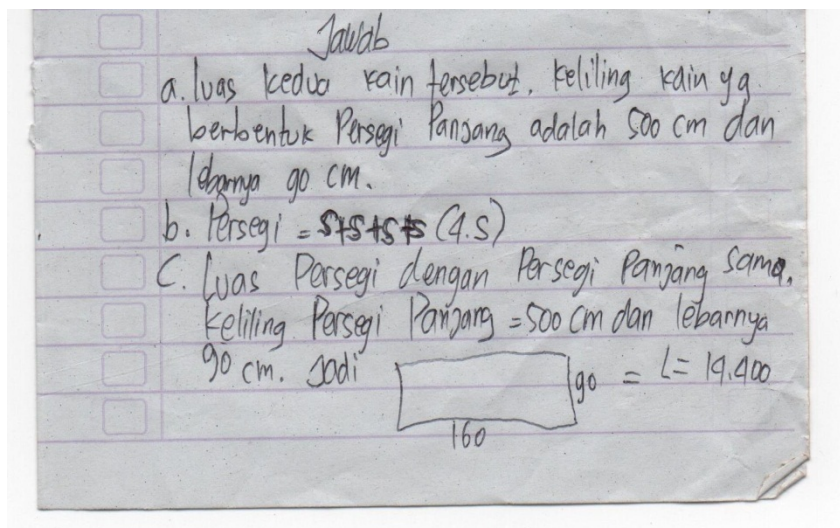 Jawab
a. luas kedua kain tersebut. keliling kain yg
berbentuk Persegi Panjang adalah 500 cm dan
lebarnya 90 cm.
b. Persegi = S+S+S+S (4.S)
C. Luas Persegi dengan Persegi Panjang sama.
keliling Persegi Panjang = 500 cm dan lebarnya
90 cm. Jadi 90 = L = 14.400
160